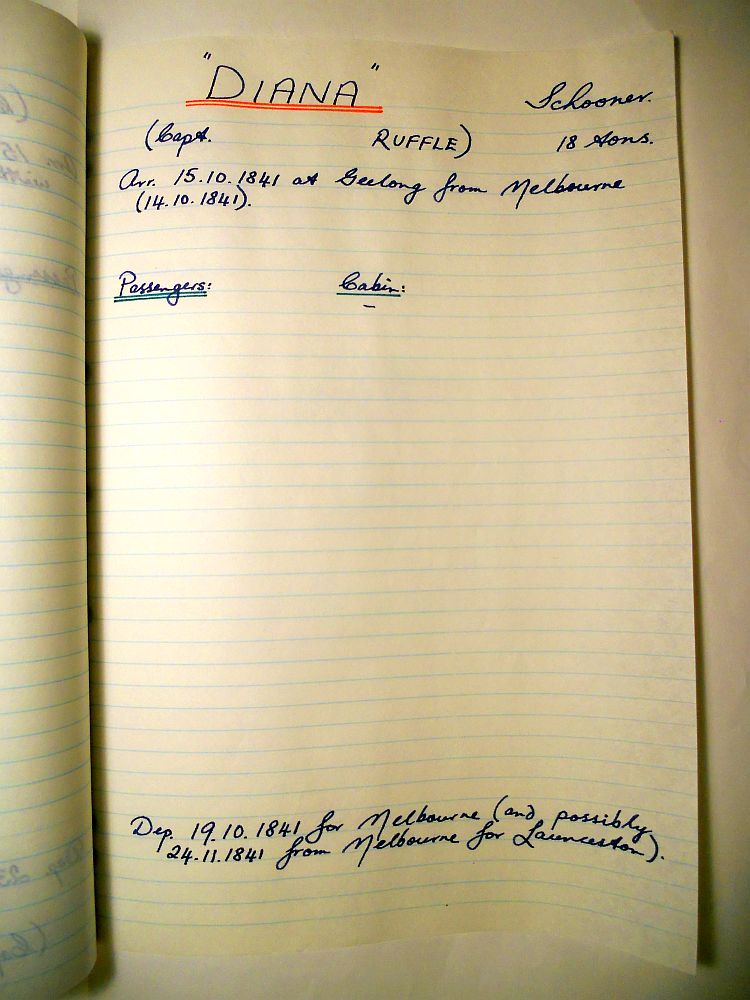 "DIANA" Schooner.
(Capt. RUFFLE) 18 tons.
Arr. 15.10.1841 at Geelong from Melbourne
(14.10.1841).
Passengers: Cabin:
–
Dep. 19.10.1841 for Melbourne (and possibly
24.11.1841 from Melbourne for Launceston).